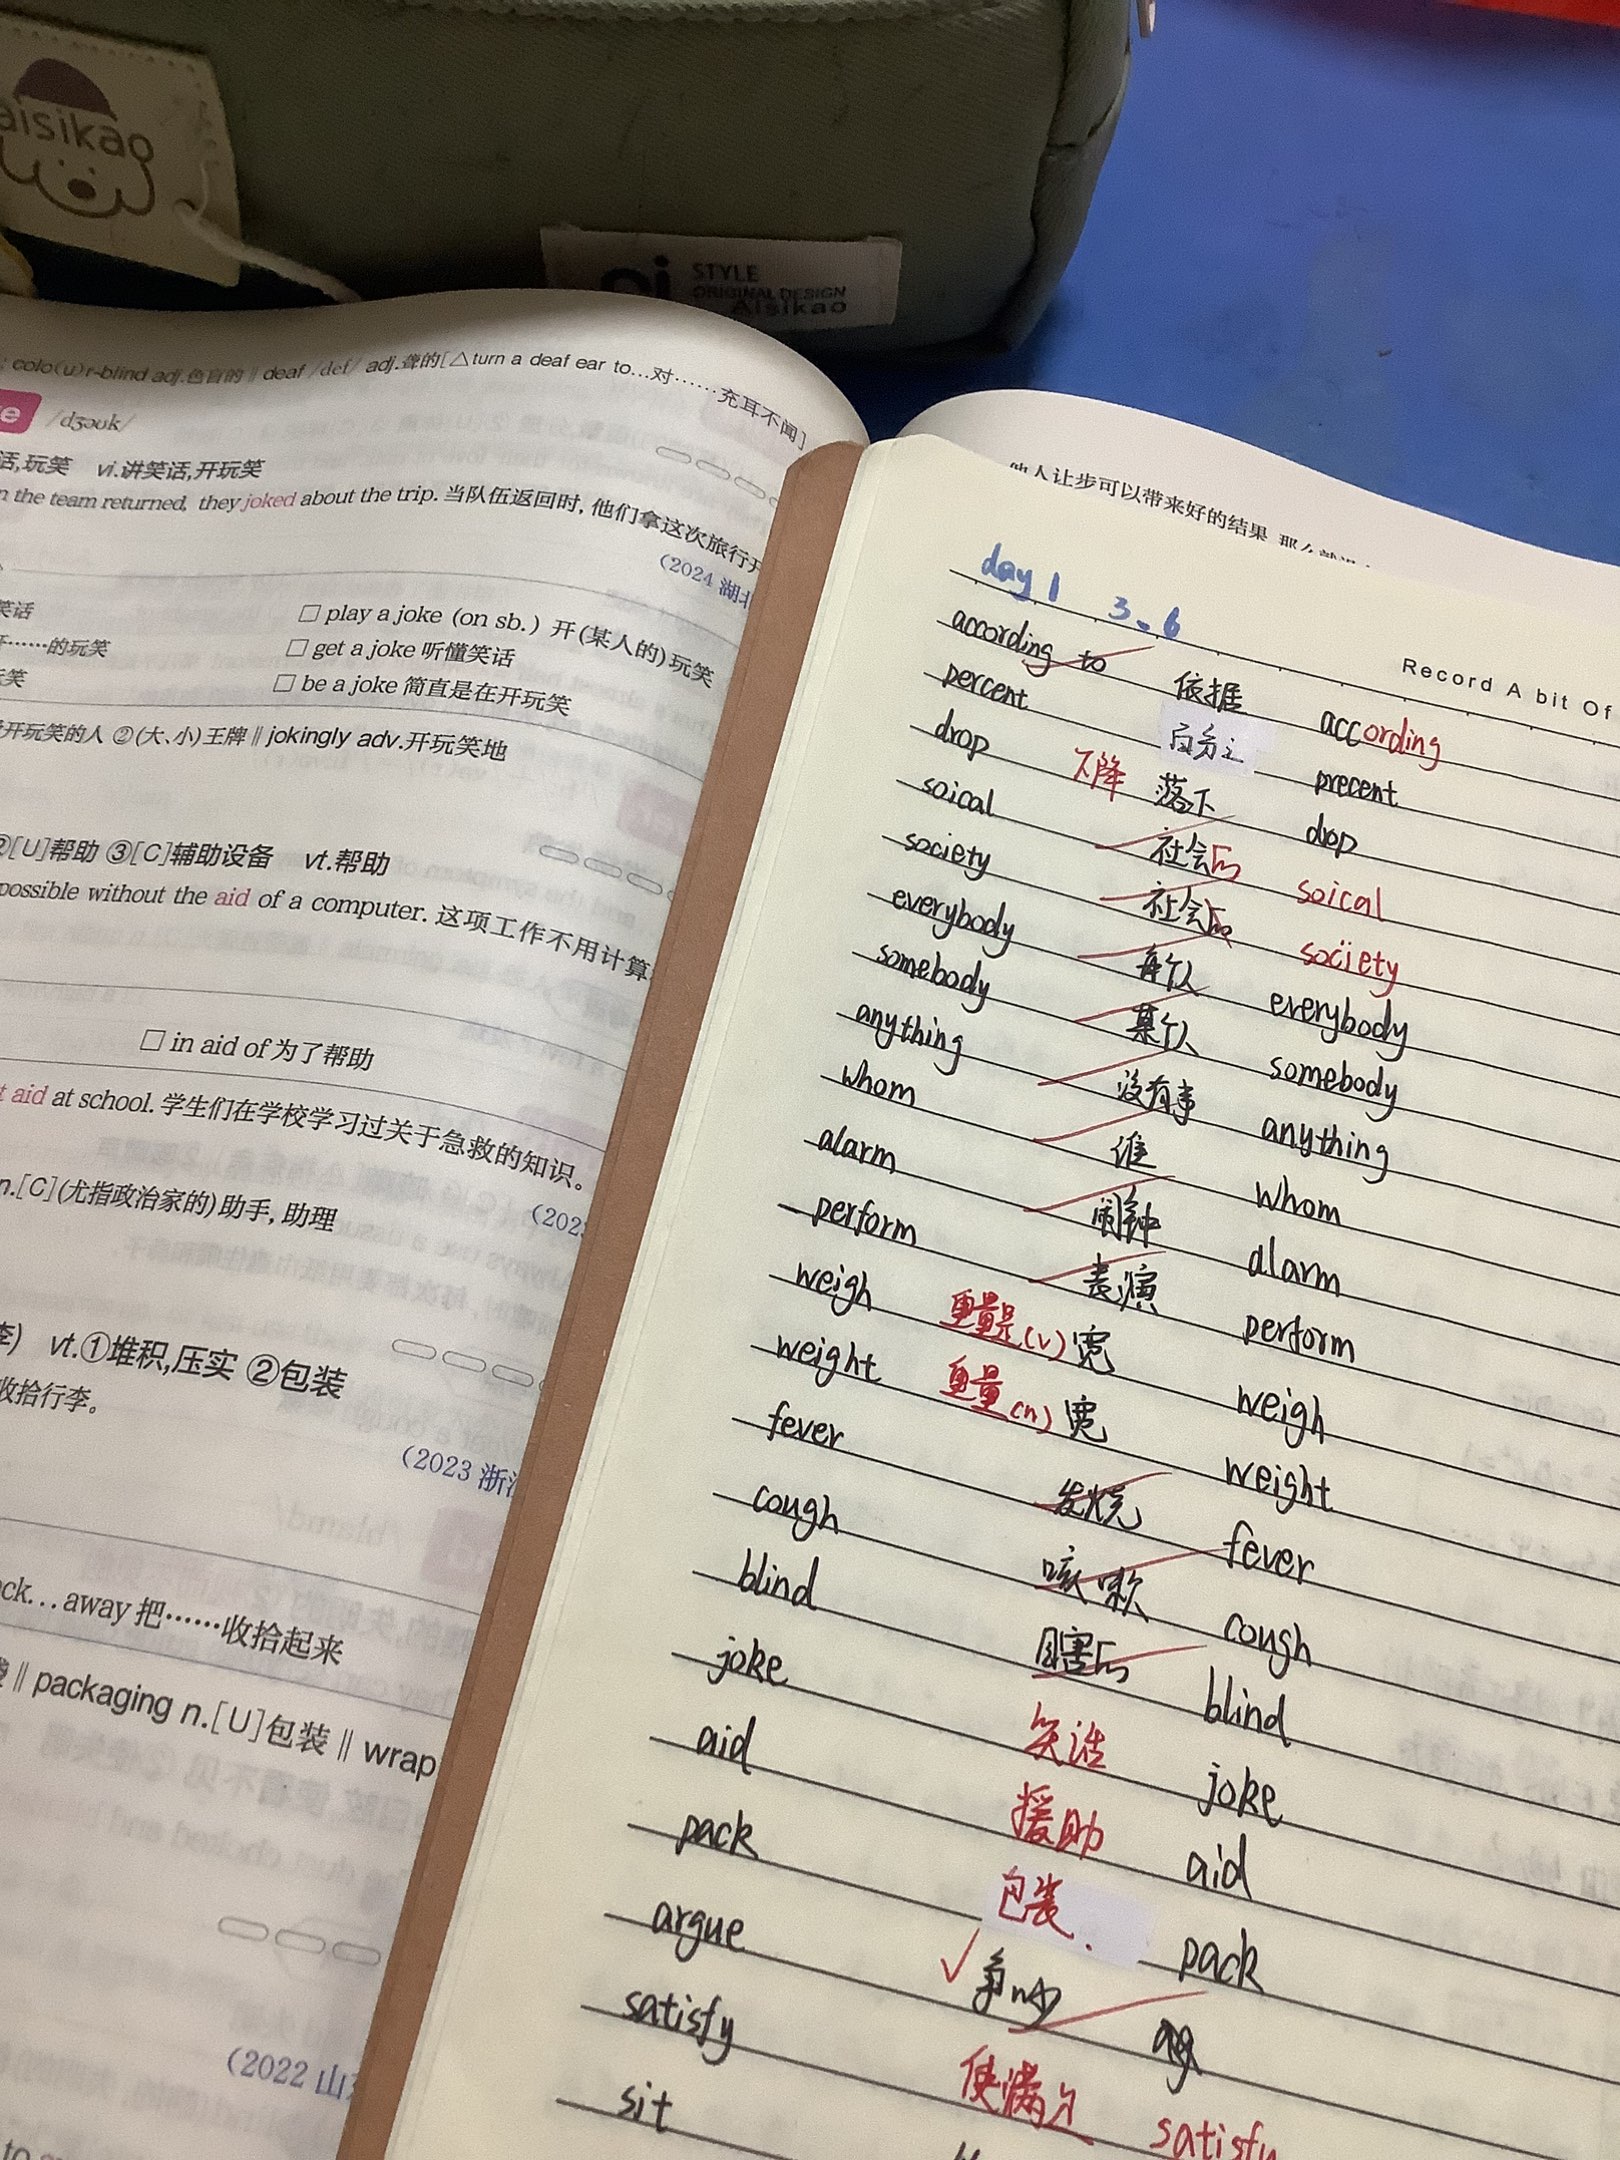 aisikao
STYLE
ORIGINAL DESIGN
Aisikao
colo(u)r-blind adj.色盲的 ‖ deaf /def/ adj.聋的[△turn a deaf ear to…对……充耳不闻]
/dʒəʊk/
话,玩笑 vi.讲笑话,开玩笑
the team returned, they joked about the trip. 当队伍返回时,他们拿这次旅行开
(2024 湖北
笑话 □ play a joke (on sb.) 开(某人的)玩笑
……的玩笑 □ get a joke 听懂笑话
笑 □ be a joke 简直是在开玩笑
开玩笑的人 ②(大、小)王牌 ‖ jokingly adv.开玩笑地
②[U]帮助 ③[C]辅助设备 vt.帮助
possible without the aid of a computer. 这项工作不用计算
□ in aid of 为了帮助
aid at school. 学生们在学校学习过关于急救的知识。
(202
n.[C](尤指政治家的)助手,助理
李) vt.①堆积,压实 ②包装
收拾行李。
(2023 浙江
ck…away 把……收拾起来
‖ packaging n.[U]包装 ‖ wrap
(2022 山
to
他人让步可以带来好的结果
day 1 3.6
Record A bit Of
according to 依据 according
percent 百分之 precent
drop 下降 落下 drop
soical 社会的 soical
society 社会的 society
everybody 每个人 everybody
somebody 某个人 somebody
anything 没有事 anything
whom 谁 whom
alarm 闹钟 alarm
perform 表演 perform
weigh 重量是(v) 宽 weigh
weight 重量(n) 宽 weight
fever 发烧 fever
cough 咳嗽 cough
blind 瞎的 blind
joke 笑话 joke
aid 援助 aid
pack 包装. pack
argue 争吵
satisfy 使满意 satisfy
sit